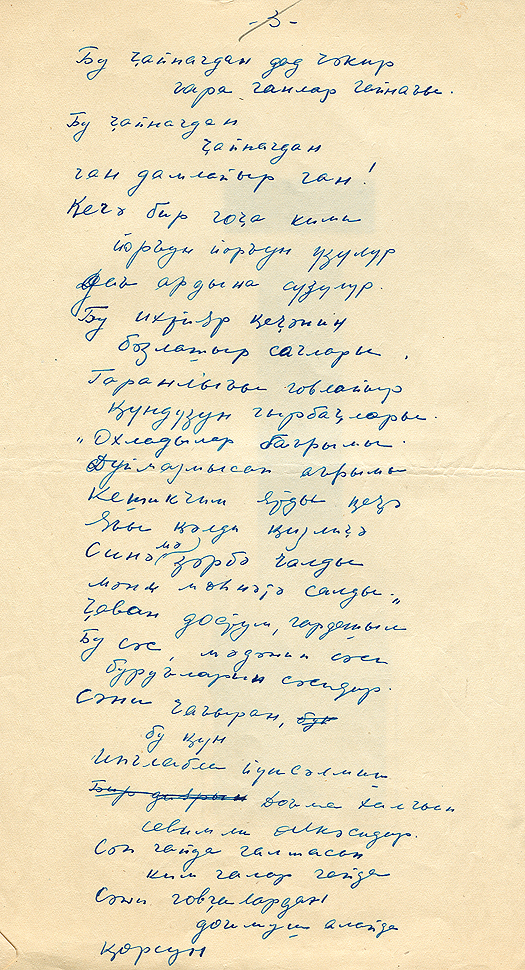 -3-
Бу ҹайнагдан дад чәкир
гара ганлар гайнағы.
Бу ҹайнагдан
ҹайнагдан
ган дамлайыр ган!
Кечә бир гоҹа кими
јорғун јорғун үзүлүр
ардына сүзүлүр.
Бу ихтијар кеҹәнин
бозлашыр сачлары.
Гаранлығы говлајыр
күндүзүн гырбаҹлары.
„Охладылар бағрымы
Дујмазмысан ағрымы
Кешикчим кеҹә
Јағы кәлди кизлиҹә
Синәмә зәрбә чалды
мәни мәһнәтә салды."
Ҹаван достум, гардашым
Бу сәс, мәдәнин сәси
буругларын сәсидир.
Сәни чағыран,
бу күн
Ингилабла јүксәлмиш
Доғма халгын
севимли өлкәсидир.
Сән гајда галмасан
ким галар гајда
Сәни говғалардан
доғмуш алајда
көрсүн